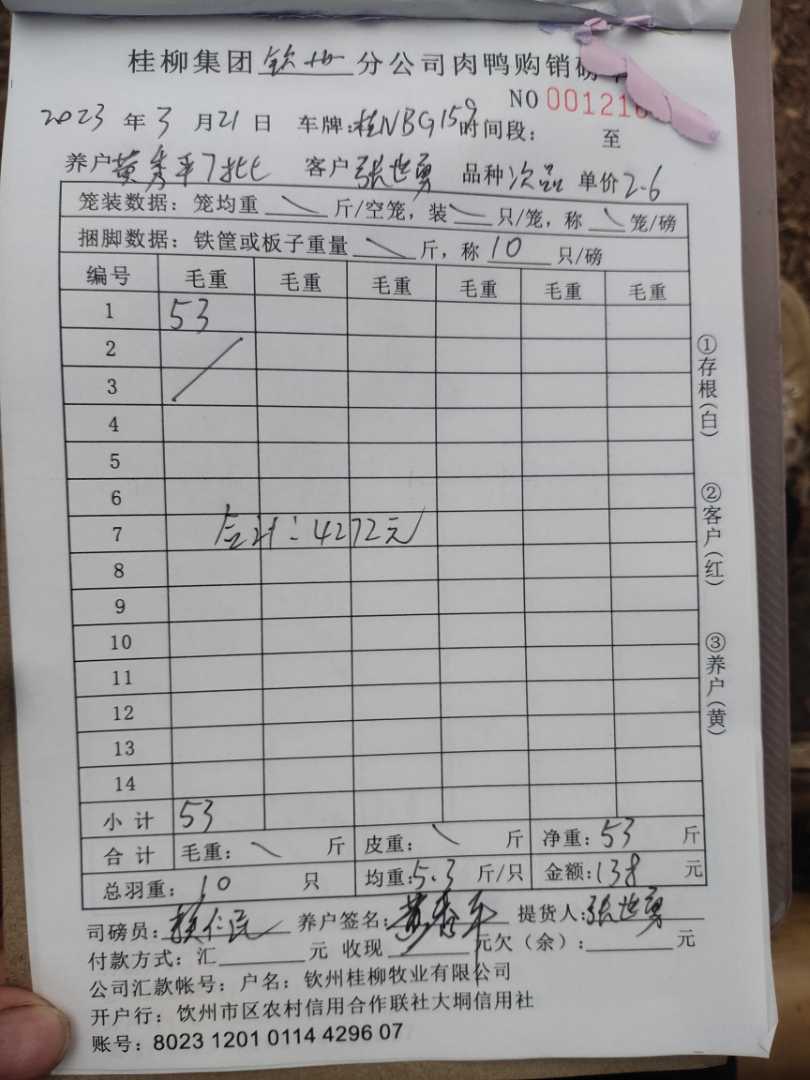 桂柳集团 钦州 分公司肉鸭购销磅
NO 00121
2023 年 3 月 21 日 车牌:桂NBG159 时间段: 至
养户 黄秀平7批 客户 张世勇 品种 次品 单价 2.6
笼装数据: 笼均重 \ 斤/空笼, 装 \ 只/笼, 称 \ 笼/磅
捆脚数据: 铁筐或板子重量 \ 斤, 称 10 只/磅
编号 毛重 毛重 毛重 毛重 毛重 毛重
1 53
2
3
4
5
6
7 合计: 4272元
8
9
10
11
12
13
14
小计 53
合计 毛重: \ 斤 皮重: \ 斤 净重: 53 斤
总羽重: 10 只 均重: 5.3 斤/只 金额: 138 元
司磅员: 养户签名: 黄秀平 提货人: 张世勇
付款方式: 汇 元 收现 元欠(余): 元
公司汇款帐号: 户名: 钦州桂柳牧业有限公司
开户行: 钦州市区农村信用合作联社大垌信用社
账号: 8023 1201 0114 4296 07
①存根(白)
②客户(红)
③养户(黄)